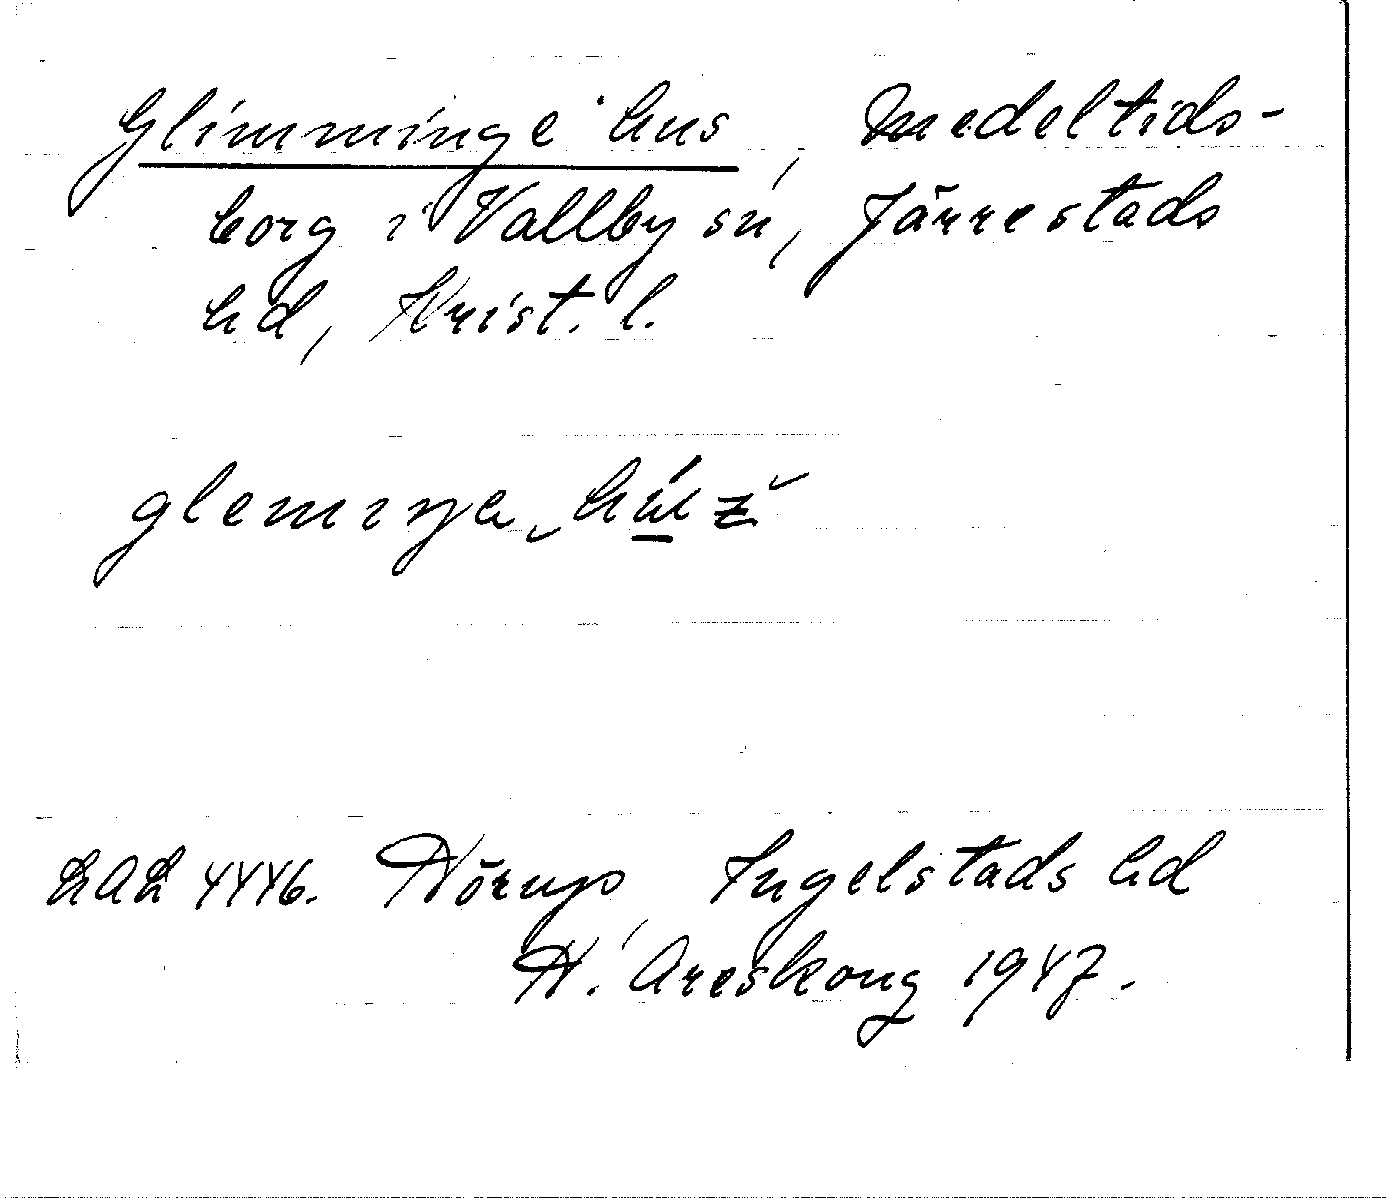 Glimminge hus, medeltids-
borg i Vallby sn, Järrestads
hd, Krist. l.
LAL 4446. Nörup, Ingelstads hd
N. Areskoug 1947.